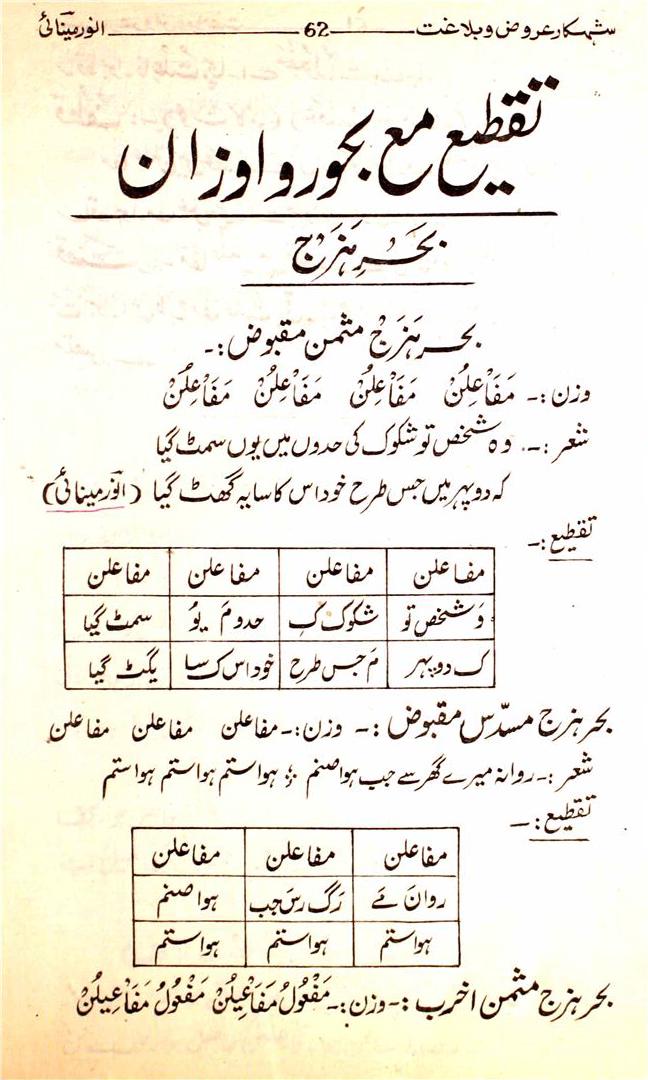 شہکار عروض و بلاغت 62 انور مینائی
تقطیع مع بحور و اوزان
بحرِ ہَزَج
بحر ہَزَج مثمن مقبوض :۔
وزن :۔ مَفَاعِلُنْ مَفَاعِلُنْ مَفَاعِلُنْ مَفَاعِلُنْ
شعر :۔ وہ شخص تو شکوک کی حدوں میں یوں سمٹ گیا
کہ دوپہر میں جس طرح خود اس کا سایہ گھٹ گیا (انور مینائی)
تقطیع :۔
مفاعلن مفاعلن مفاعلن مفاعلن
وَ شخص تو شکوک کِ حدو مَ یوُ سمٹ گیا
ک دوپہر مَ جس طرح خود اس ک سا یگٹ گیا
بحر ہزج مسدّس مقبوض :۔ وزن :۔ مفاعلن مفاعلن مفاعلن
شعر :۔ روانہ میرے گھر سے جب ہوا صنم ؛ ہوا ستم ہوا ستم ہوا ستم
تقطیع :۔
مفاعلن مفاعلن مفاعلن
روان مَے رَگ رسَ جب ہوا صنم
ہوا ستم ہوا ستم ہوا ستم
بحر ہزج مثمن اخرب :۔ وزن :۔ مَفْعُولُ مَفَاعِیلُنْ مَفْعُولُ مَفَاعِیلُنْ